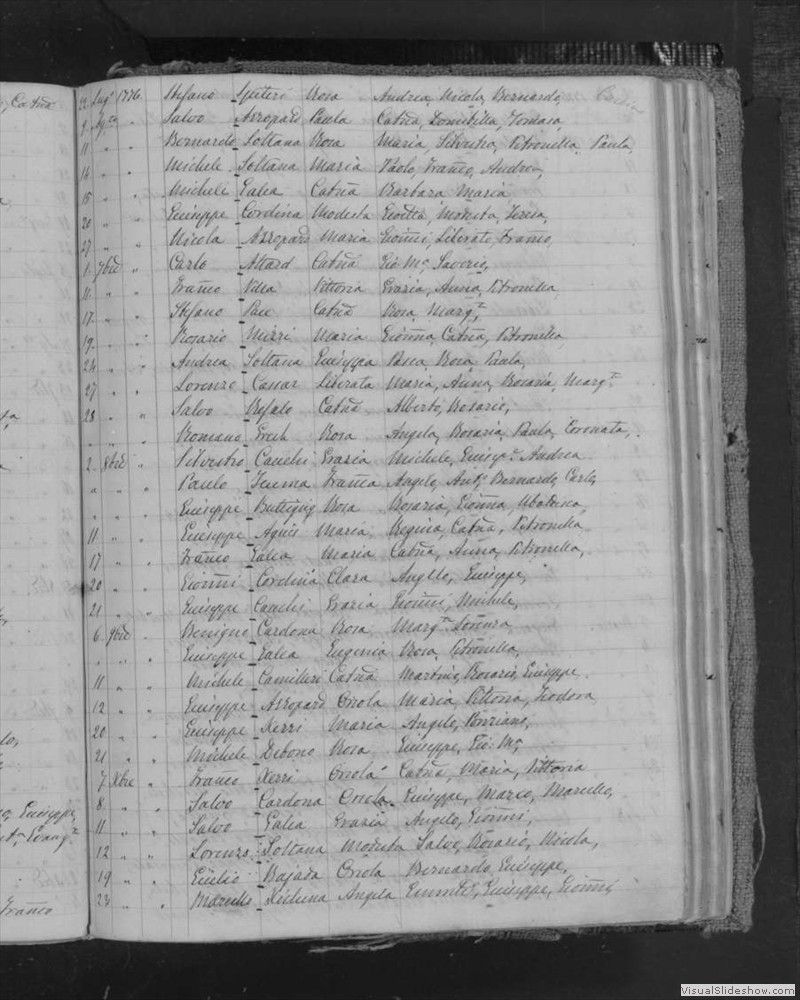 22 Lug.o 1776 Stefano Spiteri Rosa Andrea, Nicola, Bernardo,
9 Ag.to " Salvo Azzopard Paula Cat̃na, Domitilla, Tomasa,
11 " " Bernardo Soltana Rosa Maria, Silvestra, Petronella, Paula,
14 " " Michele Soltana Maria Paolo, Fran̄co, Andrea,
15 " " Michele Galea Cat̃na Barbara Maria
20 " " Giuseppe Cordina Modesta Teresa,
27 " " Nicola Azzopard Maria Gio͠nni, Liberato, Fran̄co,
1 7bre " Carlo Attard Cat̃na Gio M.a Saverio,
11 " " Fran̄co Villa Vittoria Grazia, Anna, Petronella
17 " " Stefano Pace Cat̃na Rosa, Marg.ta
19 " " Rosario Mizzi Maria Gio͠nna, Cat̃na, Petronella
24 " " Andrea Soltana Giuseppa Rosa Paula,
27 " " Lorenzo Cassar Liberata Maria, Anna, Rosaria, Marg.ta
28 " " Salvo Refalo Cat̃na Alberto, Rosario,
" " " Romano Grech Rosa Angela, Rosaria, Paula, Coronata,
2 8bre " Silvestro Cauchi Grazia Michele, Giusep.e Andrea
" " " Paulo Teuma Fran̄ca Angelo, Ant.o Bernardo, Carlo,
" " " Giuseppe Buttigieg Rosa Rosaria, Gio͠nna, Ubaldesca,
11 " " Giuseppe Agius Maria Regina, Cat̃na, Petronella
17 " " Fran̄co Galea Maria Cat̃na, Anna, Petronella,
20 " " Gio͠nni Cordina Clara Angelo, Giuseppe,
21 " " Giuseppe Cauchi Grazia Gio͠nni, Michele,
6 9bre " Benigno Cardona Rosa Marg.ta
" " " Giuseppe Galea Eugenia Rosa Petronella,
11 " " Michele Camilleri Cat̃na Martino, Rosario, Giuseppe
12 " " Giuseppe Azzopard Orsola Maria, Vittoria, Teodora
20 " " Giuseppe Xerri Maria Angelo, Ponziano,
21 " " Michele Debono Rosa Giuseppe, Gio: M.a
7 Xbre " Fran̄co Xerri Orsola Cat̃na, Maria, Vittoria
8 " " Salvo Cardona Orsola Giuseppe, Marco, Marcello,
11 " " Salvo Galea Grazia Angelo, Gio͠nni,
12 " " Lorenzo Soltana Modesta Salvo, Rosario, Nicola,
19 " " Giulio Bajada Orsola Bernardo, Giuseppe,
23 " " Marcello Xicluna Angela Giuseppe, Gio͠nni
VisualSlideshow.com